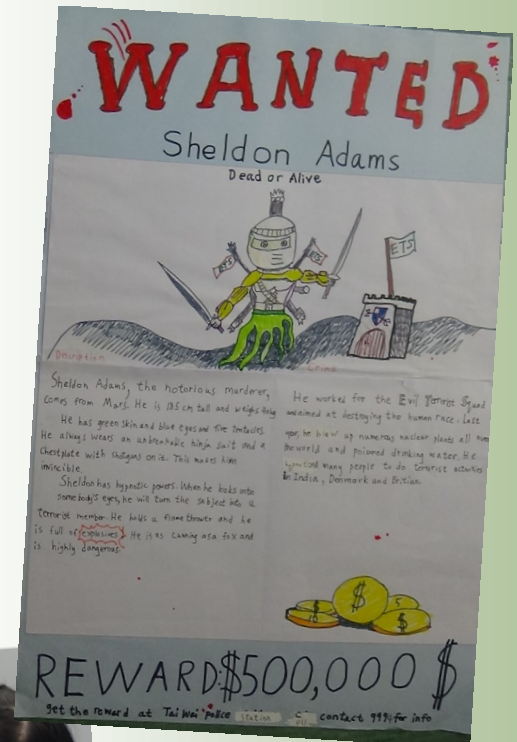 WANTED
Sheldon Adams
Dead or Alive
ETS
ETS
ETS
Description
Crime
Sheldon Adams, the notorious murderer,
comes from Mars. He is 185 cm tall and weighs
He has green skin and blue eyes and five tentacles.
He always wears an unbreakable ninja suit and a
chestplate with shotguns on it. This makes him
invincible.
Sheldon has hypnotic powers. When he looks into
somebody's eyes, he will turn the subject into a
terrorist member. He holds a flamethrower and he
is full of explosives. He is as cunning as a fox and
is highly dangerous.
He worked for the Evil Terrorist Squad
and aimed at destroying the human race. Last
year, he blew up numerous nuclear plants all
the world and poisoned drinking water. He
many people to do terrorist activities
in India, Denmark and Britian.
$
$
5
$
REWARD:$500,000 $
get the reward at Tai Wai police station contact 999 for info